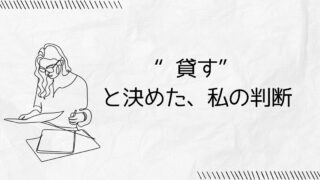 “貸す”
と決めた、私の判断